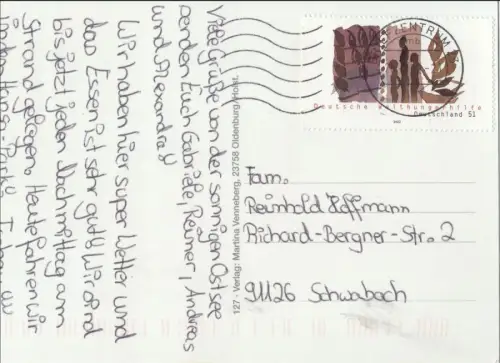 Viele Grüße von der sonnigen Ostsee
senden Euch Gabriele, Reiner, Andreas
und Alexandra!!
Wir haben hier super Wetter und
das Essen ist sehr gut!! Wir sind
bis jetzt jeden Nachmittag am
Strand gelegen. Heute fahren wir
127 · Verlag: Martina Venneberg, 23758 Oldenburg/Holst.
ZENTRUM
Deutsche Welthungerhilfe
Deutschland 51
Fam.
Reinhold Hoffmann
Richard-Bergner-Str. 2
91126 Schwabach